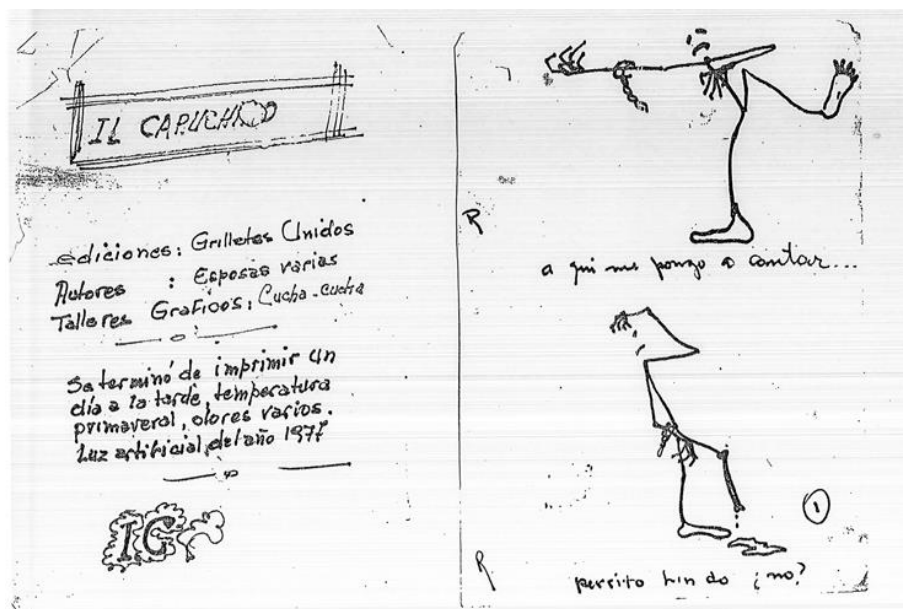 IL CAPUCHINO
ediciones: Grilletes Unidos
Autores : Esposas varias
Talleres Graficos: Cucha-cucha
Se terminó de imprimir un
día a la tarde, temperatura
primaveral, olores varios.
Luz artificial, del año 1977
IC
R
a qui me pongo a cantar...
1
R
perrito lindo ¿no?